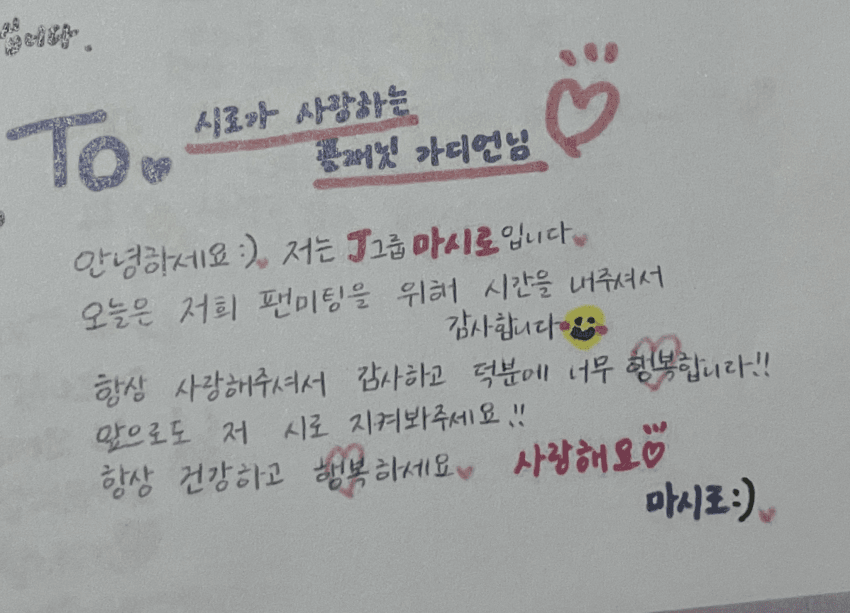 습니다.
To 시로가 사랑하는
플래닛 가디언님
안녕하세요:) 저는 J그룹 마시로입니다
오늘은 저희 팬미팅을 위해 시간을 내주셔서
감사합니다
항상 사랑해주셔서 감사하고 덕분에 너무 행복합니다!!
앞으로도 저 시로 지켜봐주세요!!
항상 건강하고 행복하세요 사랑해요
마시로:)